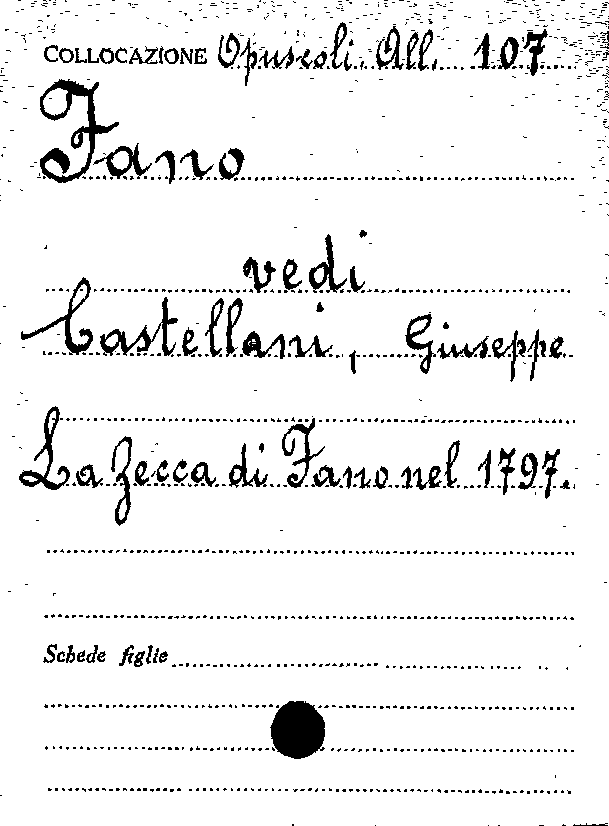 COLLOCAZIONE Opuscoli. All. 107
Fano
vedi
Castellani, Giuseppe
La Zecca di Fano nel 1797.
Schede figlie